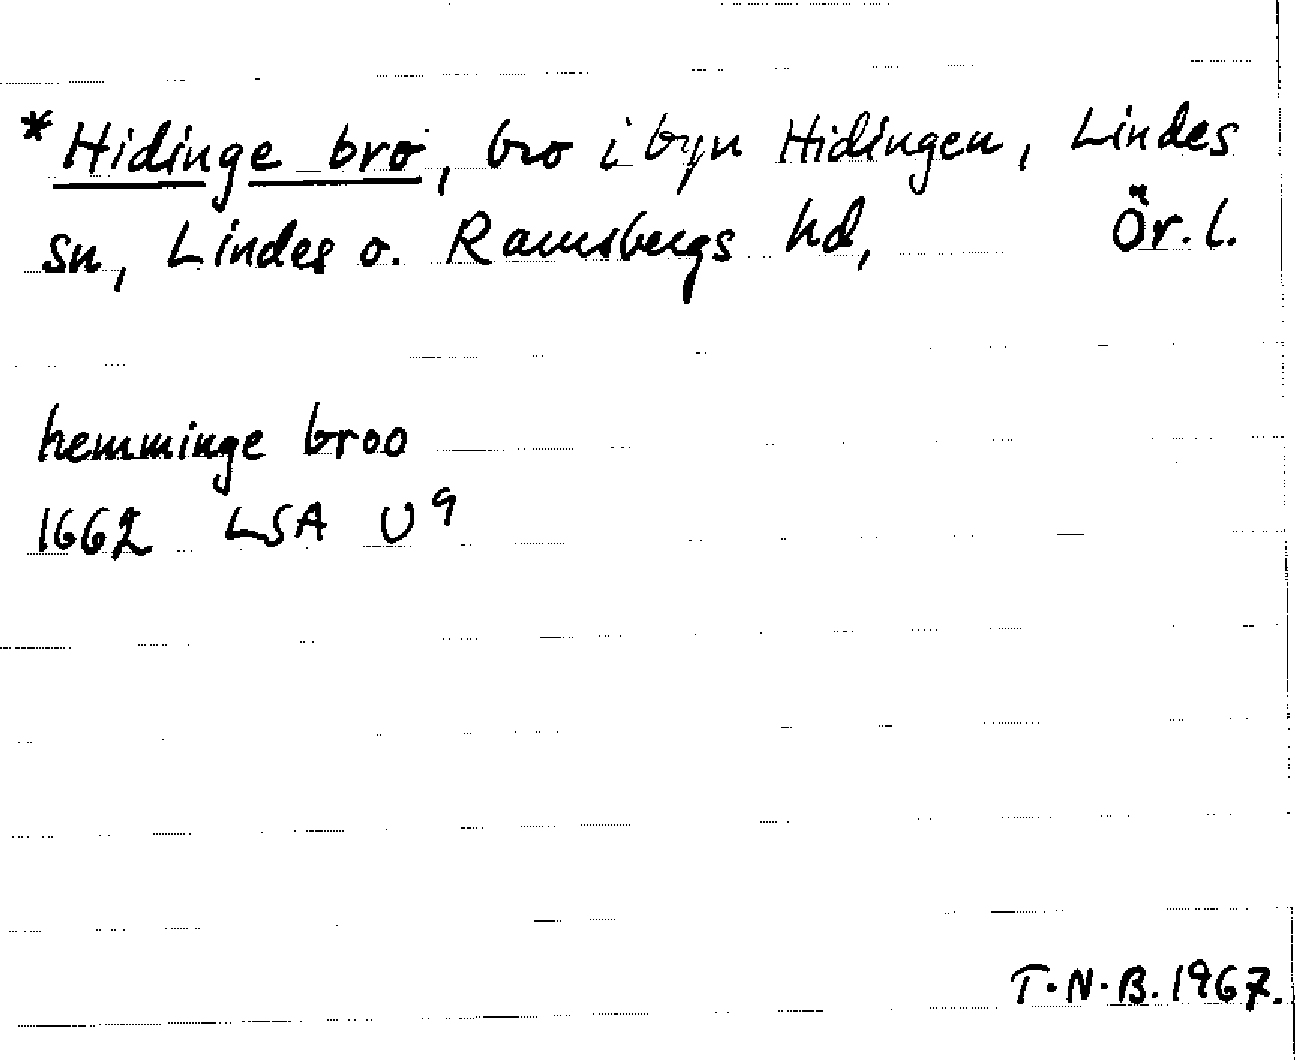 *Hidinge bro, bro i byn Hidingen, Lindes
sn, Lindes o. Ramsbergs hd, Ör. l.
hemminge broo
1662 LSA U9
T.N.B. 1967.